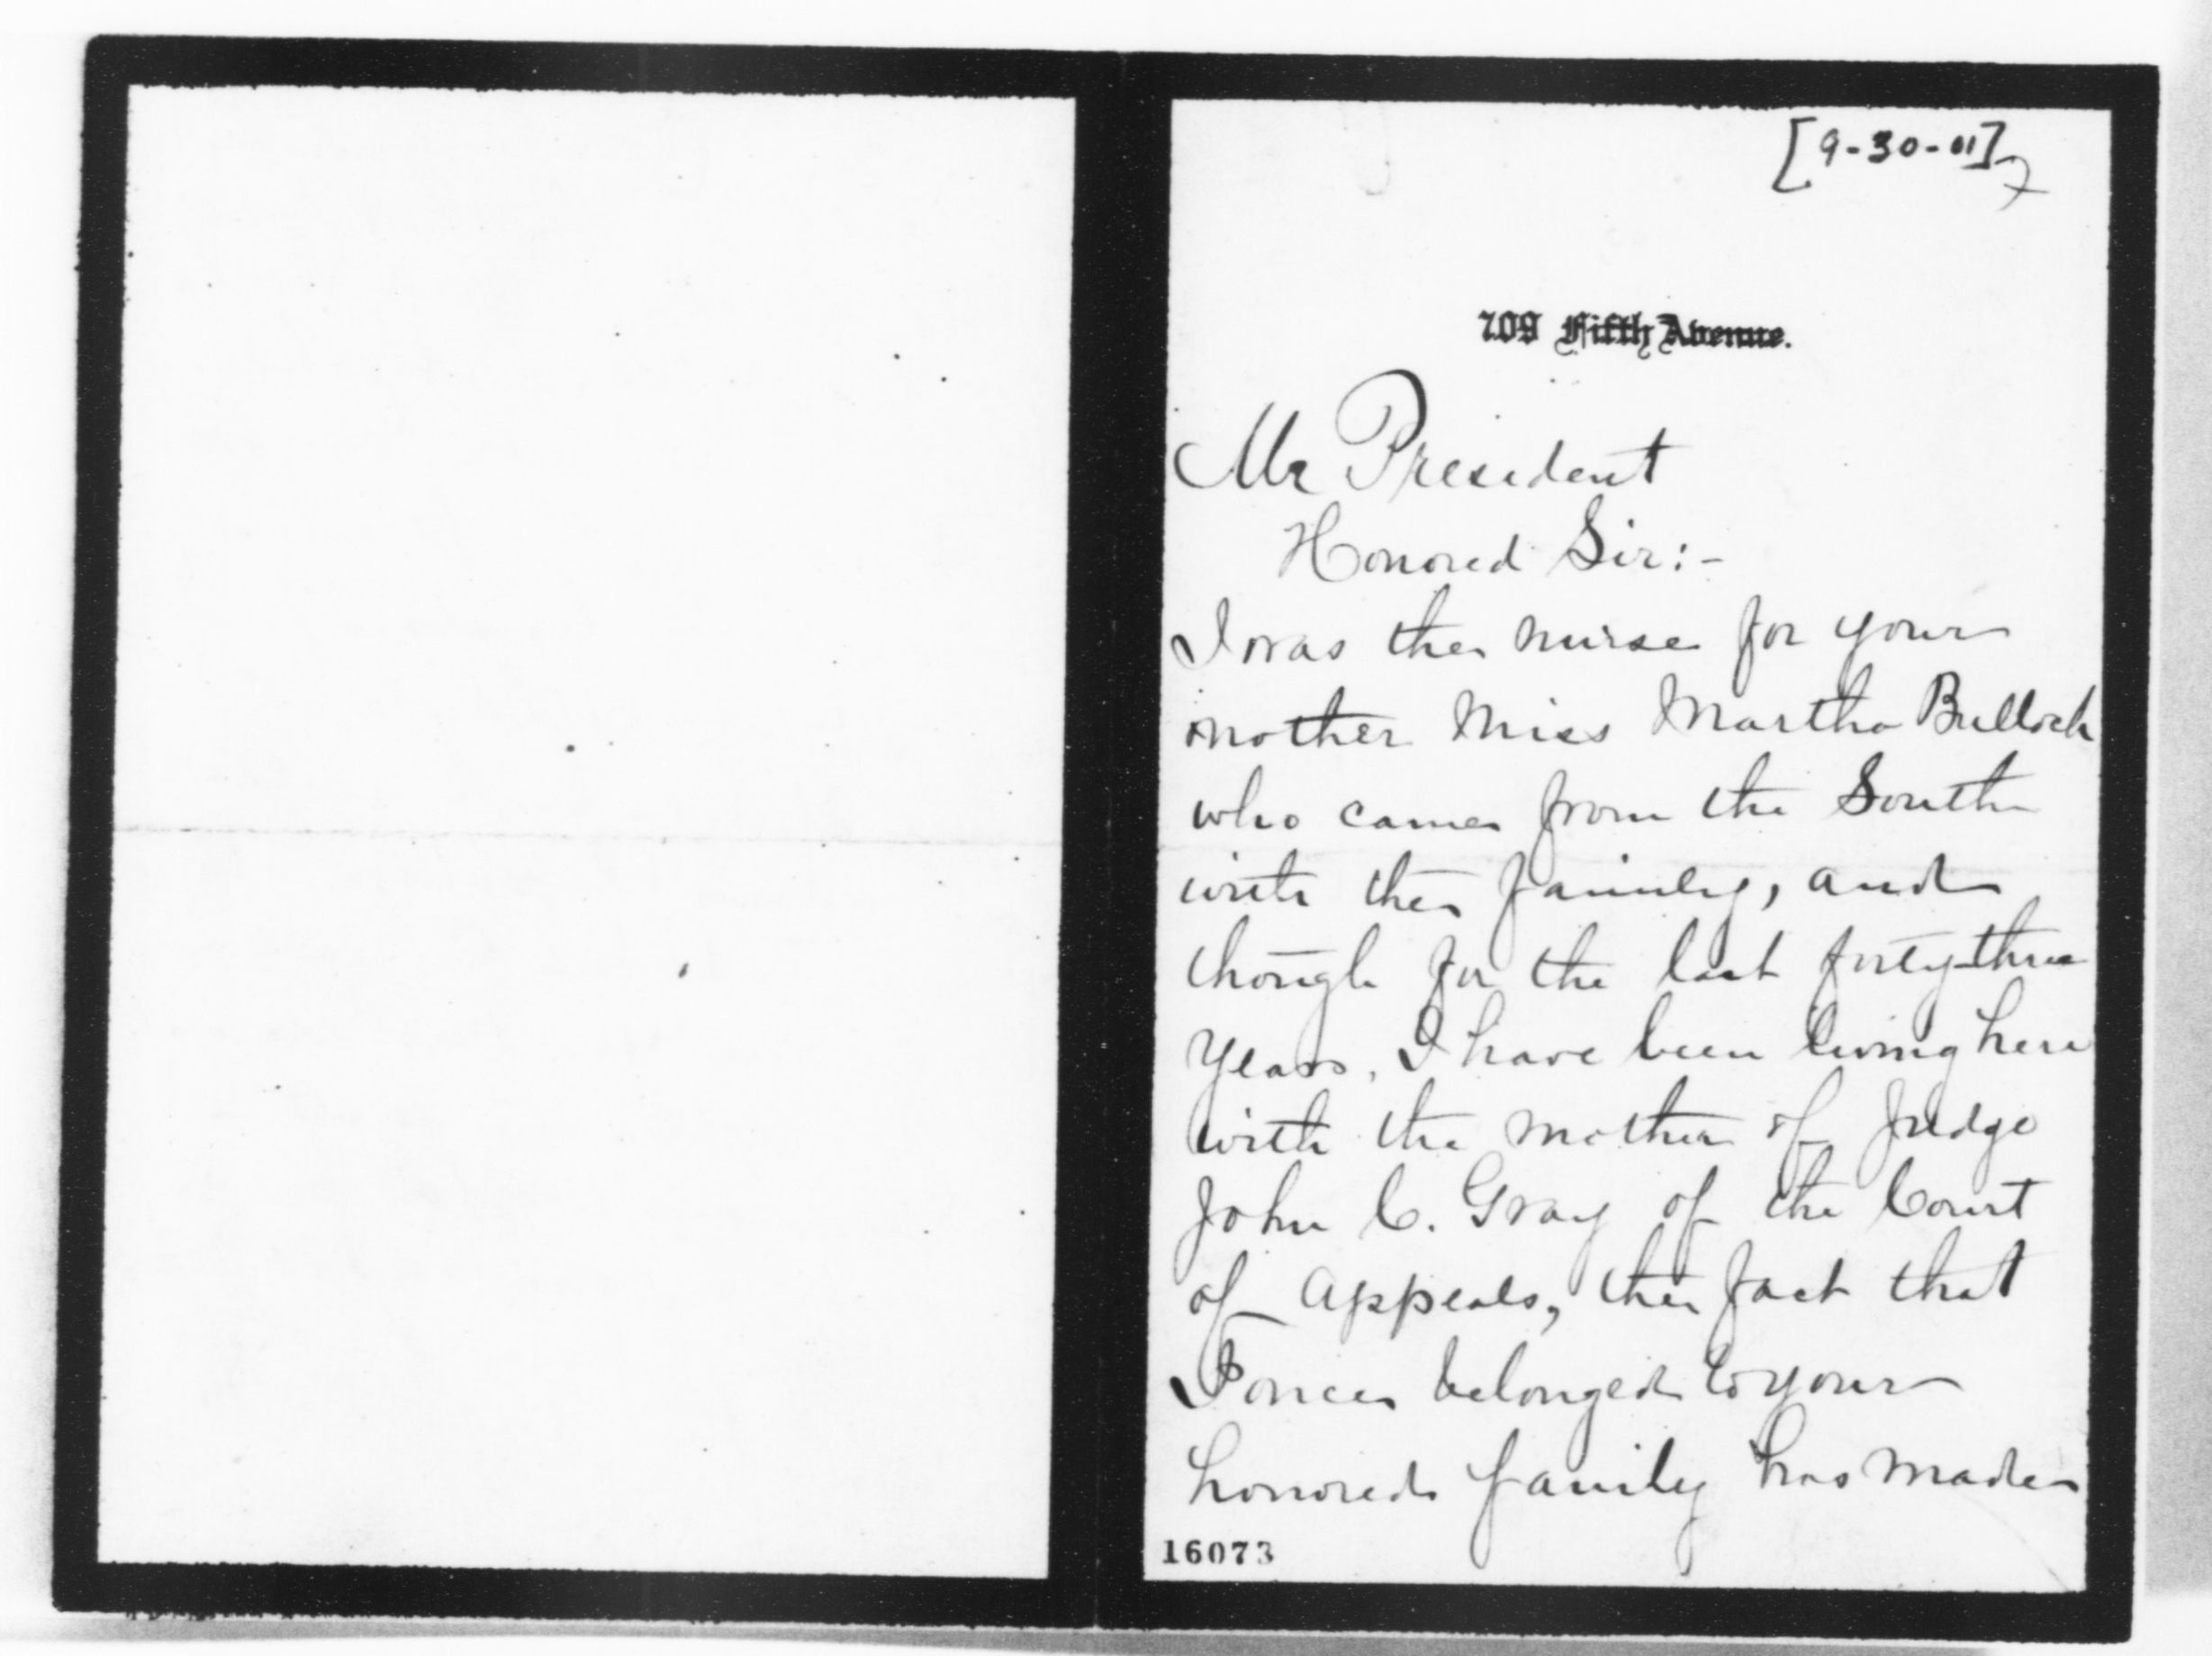 [9-30-01]
709 Fifth Avenue.
Mr President
Honored Sir:-
I was the nurse for your
mother Miss Martha Bulloch
who came from the South
with the family, and
though for the last forty-three
years, I have been living here
with the mother of Judge
John C. Gray of the Court
of Appeals, the fact that
I once belonged to your
honored family has made
16073